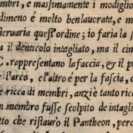 membri, e massimamente i modiglio
dimeno è molto ben lauorata, e m
seruaria quest'ordine; io faria la
a il dentìcolo integliato, ma il cim
, rappresentano la faccia, & il p
Parco, & altro è per la fascia,
ricca di membri, anzi è tanto ricc
membro fusse scolpito de intagli
to che ristaurò il Pantheon, perc